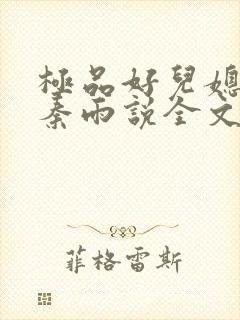 極品好兒媳
秦雨説全文
菲格雷斯